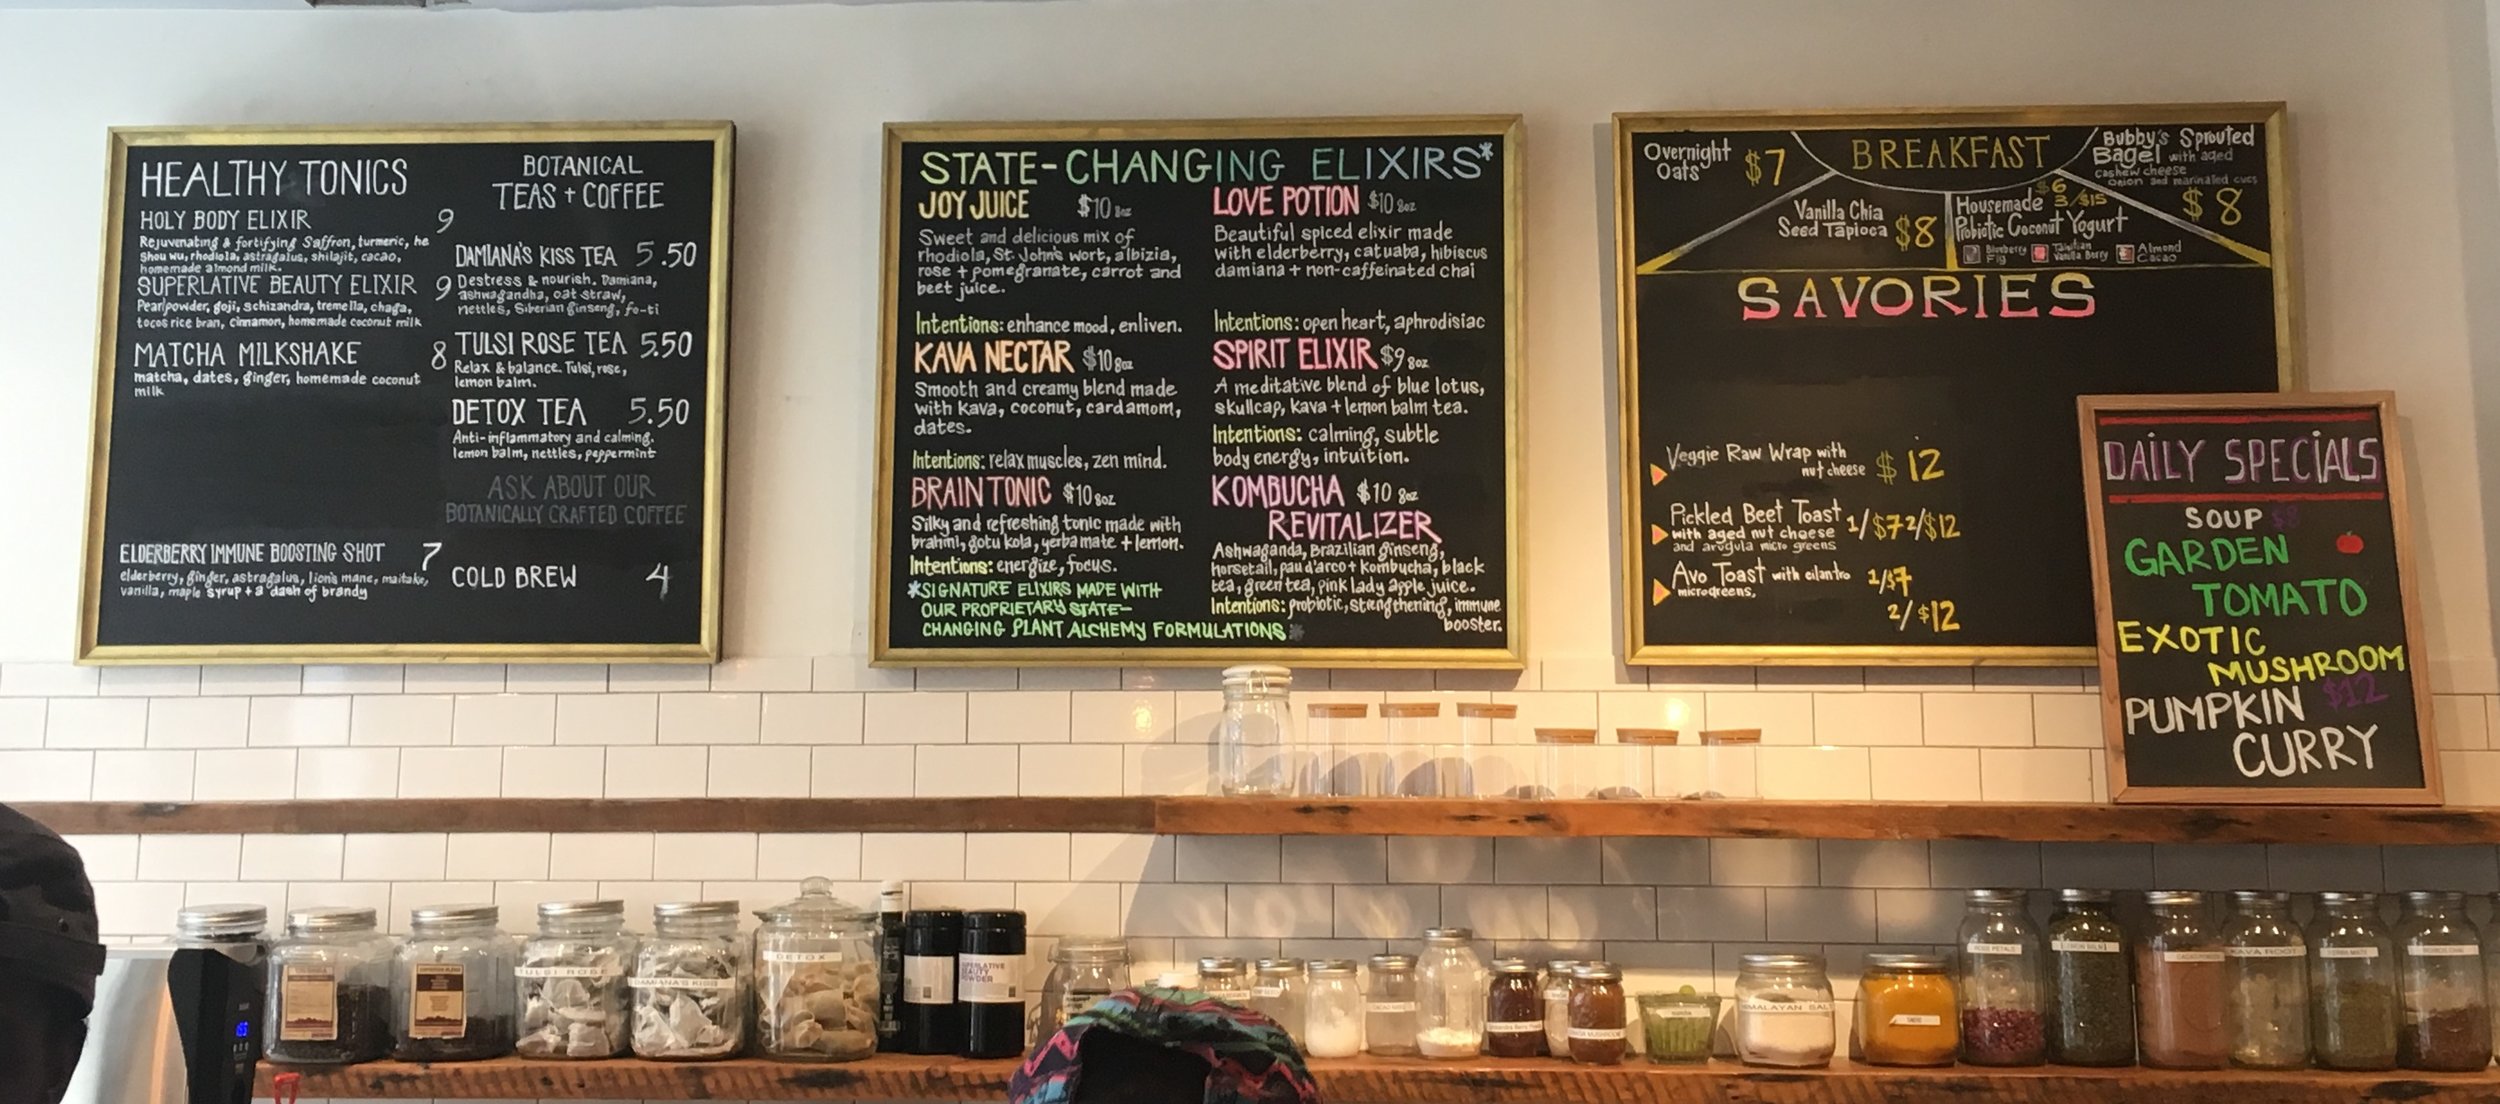 HEALTHY TONICS
HOLY BODY ELIXIR 9
Rejuvenating & fortifying Saffron, turmeric, he
shou wu, rhodiola, astragalus, shilajit, cacao,
homemade almond milk.
SUPERLATIVE BEAUTY ELIXIR 9
Pearl powder, goji, schizandra, tremella, chaga,
tocos rice bran, cinnamon, homemade coconut milk
MATCHA MILKSHAKE 8
matcha, dates, ginger, homemade coconut
milk
ELDERBERRY IMMUNE BOOSTING SHOT 7
elderberry, ginger, astragalus, lion's mane, maitake,
vanilla, maple syrup + a dash of brandy
BOTANICAL
TEAS + COFFEE
DAMIANA'S KISS TEA 5.50
Destress & nourish. Damiana,
ashwagandha, oat straw,
nettles, Siberian ginseng, fo-ti
TULSI ROSE TEA 5.50
Relax & balance. Tulsi, rose,
lemon balm.
DETOX TEA 5.50
Anti-inflammatory and calming.
lemon balm, nettles, peppermint
ASK ABOUT OUR
BOTANICALLY CRAFTED COFFEE
COLD BREW 4
STATE-CHANGING ELIXIRS*
JOY JUICE $10 8oz
Sweet and delicious mix of
rhodiola, St. John's wort, albizia,
rose + pomegranate, carrot and
beet juice.
Intentions: enhance mood, enliven.
KAVA NECTAR $10 8oz
Smooth and creamy blend made
with kava, coconut, cardamom,
dates.
Intentions: relax muscles, zen mind.
BRAIN TONIC $10 8oz
Silky and refreshing tonic made with
brahmi, gotu kola, yerba mate + lemon.
Intentions: energize, focus.
*SIGNATURE ELIXIRS MADE WITH
OUR PROPRIETARY STATE-
CHANGING PLANT ALCHEMY FORMULATIONS*
LOVE POTION $10 8oz
Beautiful spiced elixir made
with elderberry, catuaba, hibiscus
damiana + non-caffeinated chai
Intentions: open heart, aphrodisiac
SPIRIT ELIXIR $9 8oz
A meditative blend of blue lotus,
skullcap, kava + lemon balm tea.
Intentions: calming, subtle
body energy, intuition.
KOMBUCHA $10 8oz
REVITALIZER
Ashwaganda, Brazilian ginseng,
horsetail, pau d'arco + kombucha, black
tea, green tea, pink lady apple juice.
Intentions: probiotic, strengthening, immune
booster.
BREAKFAST
Overnight
Oats $7
Vanilla Chia
Seed Tapioca $8
Housemade $6
3/$15
Probiotic Coconut Yogurt
Blueberry
Fig
Tahitian
Vanilla Berry
Almond
Cacao
Bubby's Sprouted
Bagel with aged
cashew cheese
onion and marinated cucs
$8
SAVORIES
Veggie Raw Wrap with
nut cheese $12
Pickled Beet Toast 1/$7 2/$12
with aged nut cheese
and arugula micro greens
Avo Toast with cilantro 1/$7
microgreens, 2/$12
DAILY SPECIALS
SOUP $8
GARDEN
TOMATO
EXOTIC
MUSHROOM
PUMPKIN $12
CURRY
TULSI ROSE
DAMIANA'S KISS
DETOX
SUPERLATIVE
BEAUTY
POWDER
HIMALAYAN SALT
ROSE PETALS
LEMON BALM
KAVA ROOT